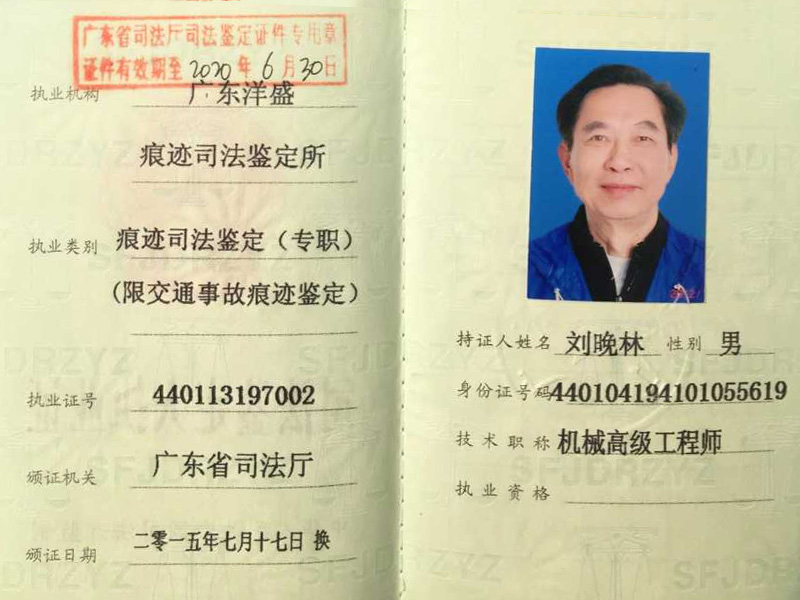 广东省司法厅司法鉴定证件专用章
证件有效期至2020年6月30日
执业机构 广东洋盛
痕迹司法鉴定所
执业类别 痕迹司法鉴定（专职）
(限交通事故痕迹鉴定)
执业证号 440113197002
颁证机关 广东省司法厅
颁证日期 二零一五年七月十七日 换
持证人姓名 刘晚林 性别 男
身份证号码440104194101055619
技术职称 机械高级工程师
执业资格
SFJDRZYZ